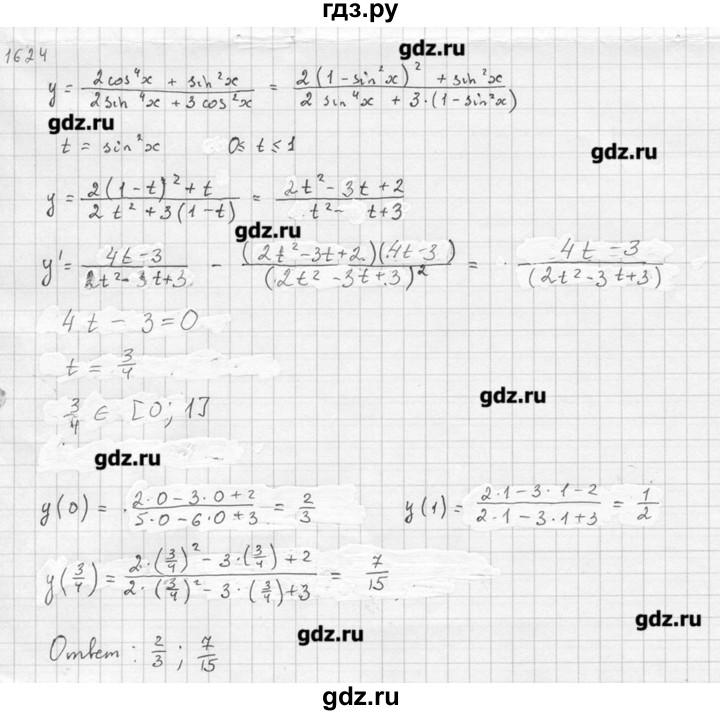 гдз.ру
1624
gdz.ru
y = (2cos⁴x + sin²x)/(2sin⁴x + 3cos²x) = (2(1-sin²x)² + sin²x)/(2 sin⁴x + 3·(1-sin²x))
gdz.ru
t = sin²x 0≤ t ≤ 1
gdz.ru
y = (2(1-t)² + t)/(2t² + 3(1-t)) = (2t² - 3t + 2)/(t² - t + 3)
gdz.ru
y' = (4t-3)/(2t² - 3t + 3) - ((2t² - 3t + 2)(4t-3))/((2t² - 3t + 3)²) = (4t - 3)/((2t² - 3t + 3))
4t - 3 = 0
t = 3/4
3/4 ∈ [0; 1]
gdz.ru
gdz.ru
y(0) = (2·0 - 3·0 + 2)/(5·0 - 6·0 + 3) = 2/3 y(1) = (2·1 - 3·1 - 2)/(2·1 - 3·1 + 3) = 1/2
y(3/4) = (2·(3/4)² - 3·(3/4) + 2)/(2·(3/4)² - 3·(3/4) + 3) = 7/15
gdz.ru
gdz.ru
Ответ: 2/3; 7/15
gdz.ru